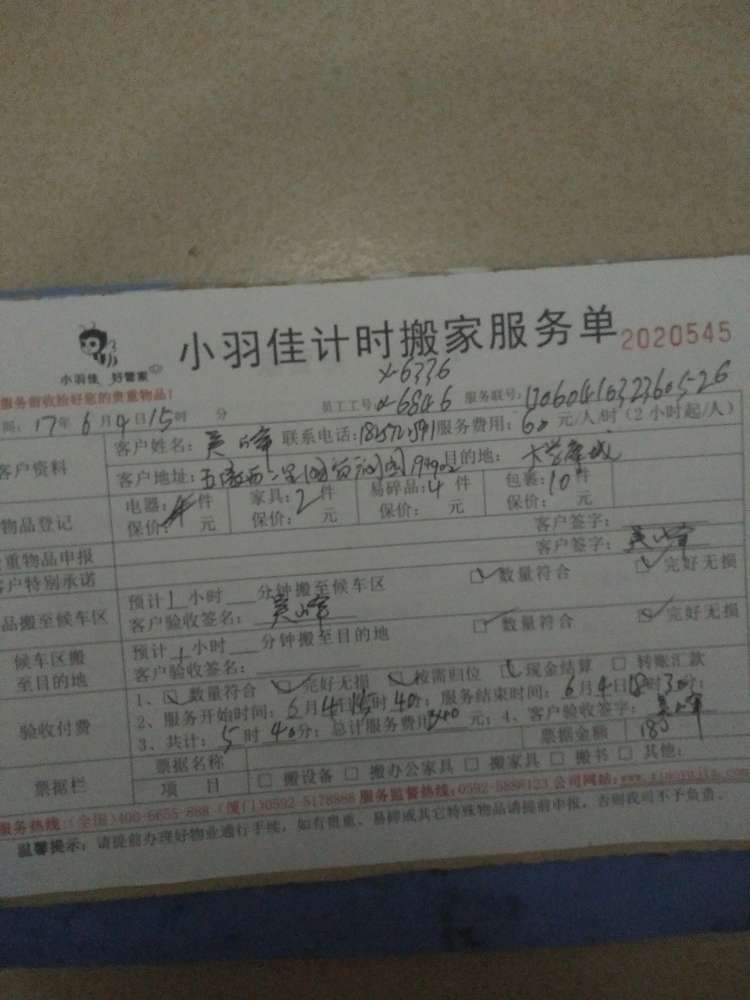 小羽佳计时搬家服务单 2020545
小羽佳 好管家
服务前收拾好您的贵重物品!
员工工号 x-6336
x-6846 服务联号:
间: 17年 6月 4日 15时 分
客户资料
客户姓名: 联系电话: 服务费用: 60 元/人/时(2小时起/人)
客户地址: 目的地:
物品登记
电器: 4件 家具: 2件 易碎品: 4件 包裹: 10件
保价: 元 保价: 元 保价: 元 保价:
重物品申报 客户签字:
客户特别承诺 客户签字:
品搬至候车区
预计 1 小时 分钟搬至候车区 数量符合 完好无损
客户验收签名:
候车区搬
至目的地
预计 1 小时 分钟搬至目的地 数量符合 完好无损
客户验收签名:
验收付费
1、 数量符合 完好无损 按需归位 现金结算 转账汇款
2、服务开始时间: 6月 4日 时 40分; 服务结束时间: 6月 4日 18时 30分;
3、共计: 5时 40分; 总计服务费用 元; 4、客户验收签字:
票据栏
票据名称 票据金额 180
项 目 搬设备 搬办公家具 搬家具 搬书 其他:
服务热线:(全国)400-5655-888 (厦门)0592-5178888 服务监督热线:0592-5886123 公司网站:
温馨提示: 请提前办理好物业通行手续, 如有贵重、易碎或其它特殊物品请提前申报, 否则我司不予负责。